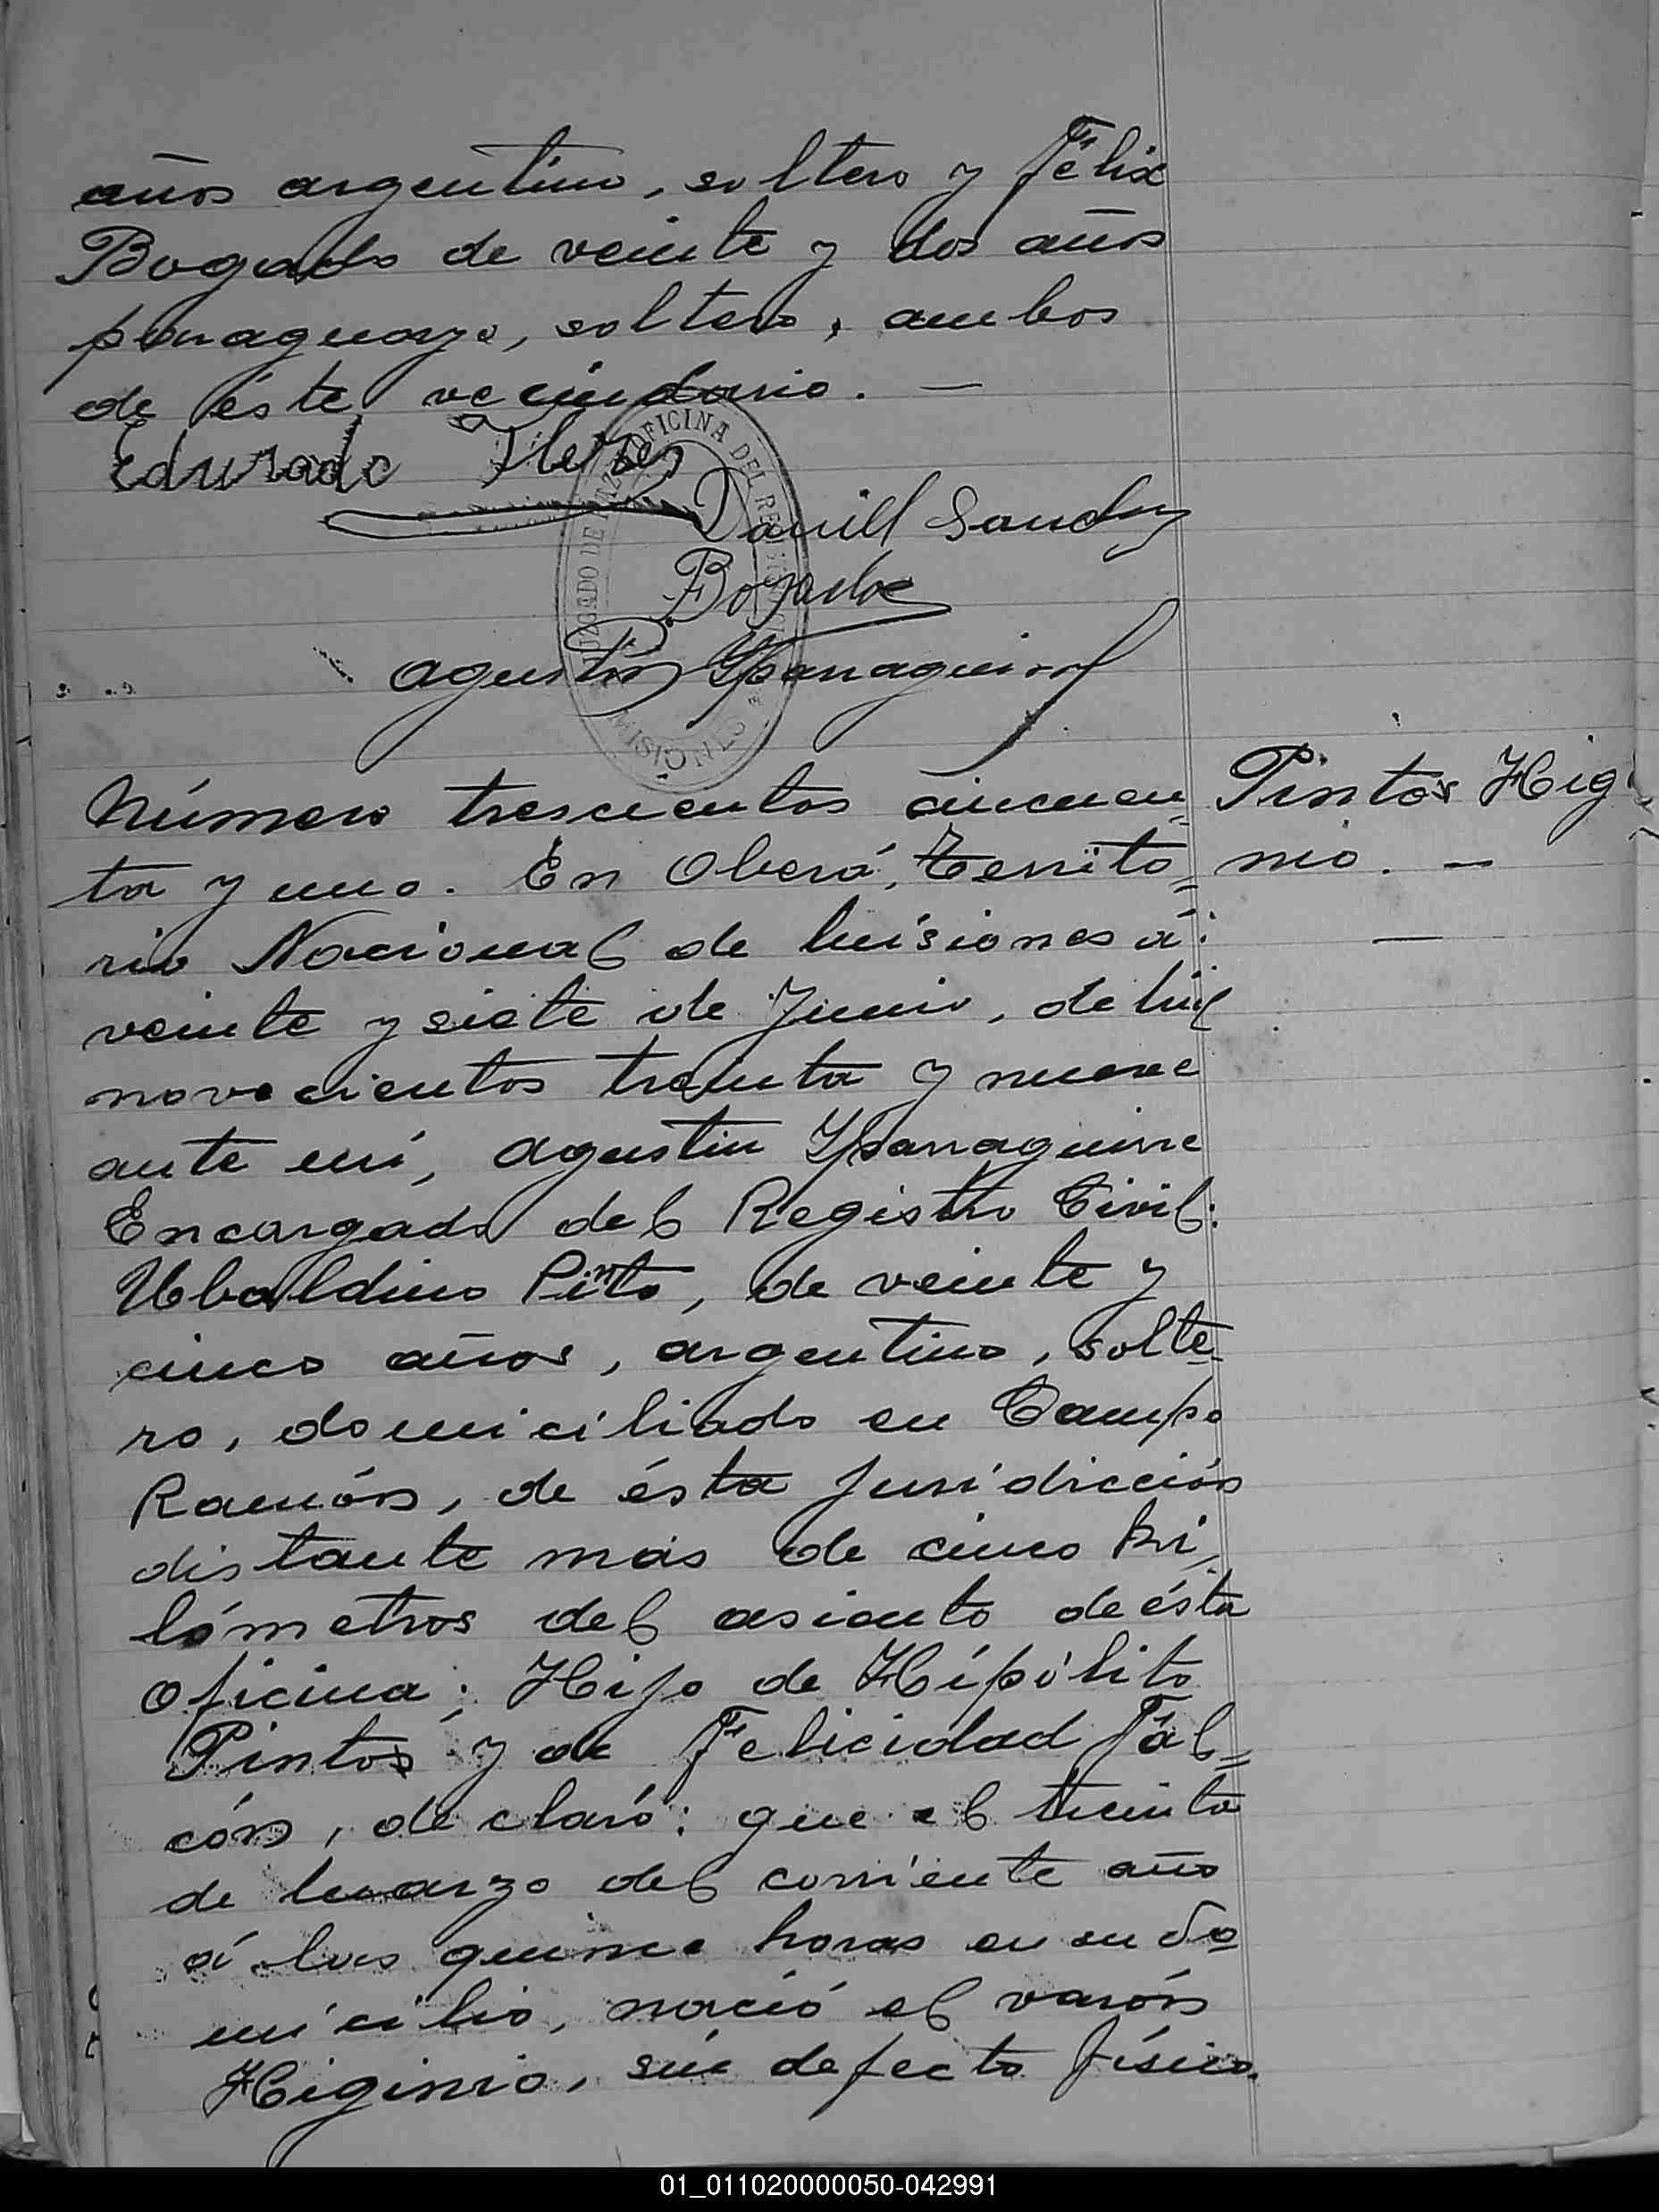 años argentino, soltero y Félix
Bogado de veinte y dos años
paraguayo, soltero, ambos
de éste vecindario. —
Edurado
Daniel Sanchez
F. Bogado
Agustin Yparraguirre
JUZGADO DE PAZ OFICINA DEL REGISTRO CIVIL
MISIONES
Pintos Higi
nio. —
—
Número trescientos cincuen=
ta y uno. En Oberá, Territo=
rio Nacional de Misiones á:
veinte y siete de Junio, de mil
novecientos treinta y nueve
ante mí, Agustin Yparraguirre
Encargado del Registro Civil:
Ubaldino Pinto, de veinte y
cinco años, argentino, solte=
ro, domiciliado en Campo
Ramón, de ésta Jurídicción
distante más de cinco ki=
lómetros del asiento de ésta
Oficina; Hijo de Hípólito
Pintos y de Felicidad Fal=
cón, declaró: que el treinta
de Marzo del corriente año
á las quince horas en su do
micilio, nació el varón
Higinio, sin defecto físico.
01_011020000050-042991